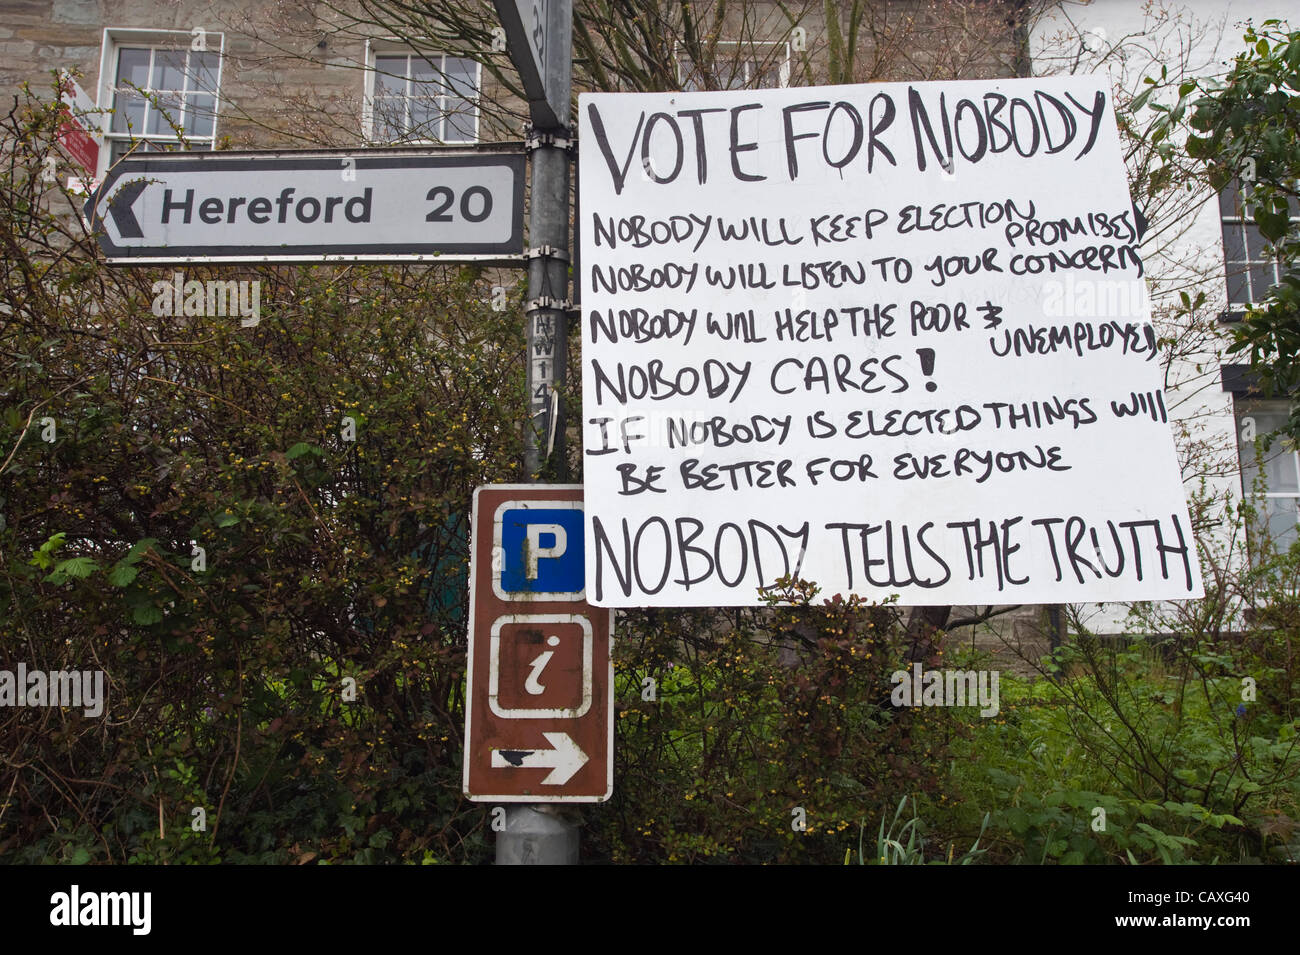 Hereford 20
VOTE FOR NOBODY
NOBODY WILL KEEP ELECTION PROMISES
NOBODY WILL LISTEN TO YOUR CONCERNS
NOBODY WILL HELP THE POOR & UNEMPLOYED
NOBODY CARES!
IF NOBODY IS ELECTED THINGS WILL
BE BETTER FOR EVERYONE
NOBODY TELLS THE TRUTH
P
i
alamy
a
alamy
Image ID: CAXG40
www.alamy.com